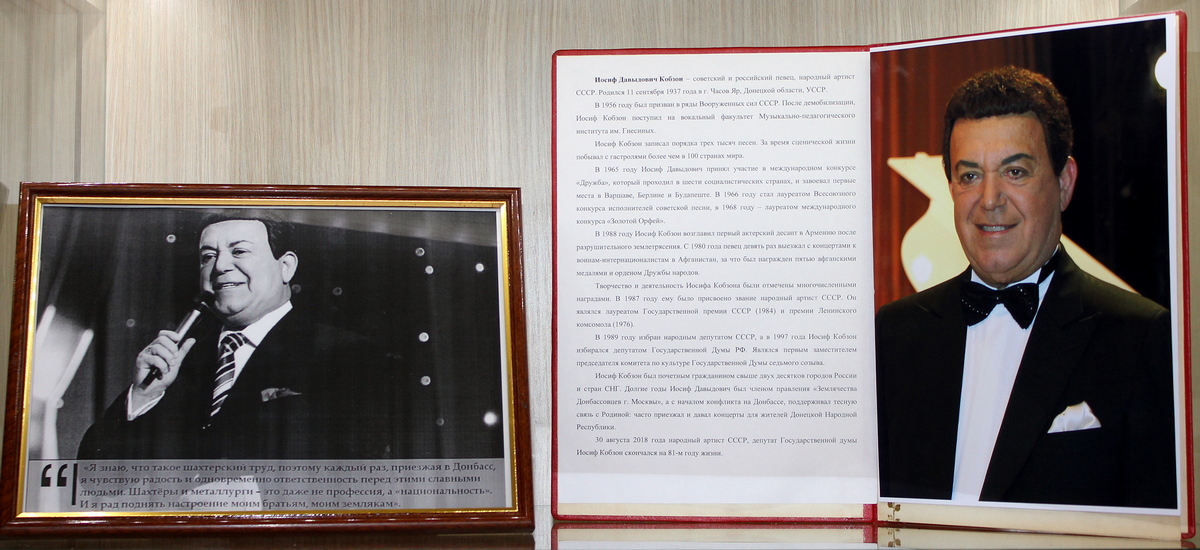 Иосиф Давыдович Кобзон – советский и российский певец, народный артист
СССР. Родился 11 сентября 1937 года в г. Часов Яр, Донецкой области, УССР.
В 1956 году был призван в ряды Вооруженных сил СССР. После демобилизации,
Иосиф Кобзон поступил на вокальный факультет Музыкально-педагогического
института им. Гнесиных.
Иосиф Кобзон записал порядка трех тысяч песен. За время сценической жизни
побывал с гастролями более чем в 100 странах мира.
В 1965 году Иосиф Давыдович принял участие в международном конкурсе
«Дружба», который проходил в шести социалистических странах, и завоевал первые
места в Варшаве, Берлине и Будапеште. В 1966 году стал лауреатом Всесоюзного
конкурса исполнителей советской песни, в 1968 году – лауреатом международного
конкурса «Золотой Орфей».
В 1988 году Иосиф Кобзон возглавил первый актерский десант в Армению после
разрушительного землетрясения. С 1980 года певец девять раз выезжал с концертами к
воинам-интернационалистам в Афганистан, за что был награжден пятью афганскими
медалями и орденом Дружбы народов.
Творчество и деятельность Иосифа Кобзона были отмечены многочисленными
наградами. В 1987 году ему было присвоено звание народный артист СССР. Он
являлся лауреатом Государственной премии СССР (1984) и премии Ленинского
комсомола (1976).
В 1989 году избран народным депутатом СССР, а в 1997 года Иосиф Кобзон
избирался депутатом Государственной Думы РФ. Являлся первым заместителем
председателя комитета по культуре Государственной Думы седьмого созыва.
Иосиф Кобзон был почетным гражданином свыше двух десятков городов России
и стран СНГ. Долгие годы Иосиф Давыдович был членом правления «Землячества
Донбассовцев г. Москвы», а с началом конфликта на Донбассе, поддерживал тесную
связь с Родиной: часто приезжал и давал концерты для жителей Донецкой Народной
Республики.
30 августа 2018 года народный артист СССР, депутат Государственной думы
Иосиф Кобзон скончался на 81-м году жизни.
“ «Я знаю, что такое шахтерский труд, поэтому каждый раз, приезжая в Донбасс,
я чувствую радость и одновременно ответственность перед этими славными
людьми. Шахтёры и металлурги – это даже не профессия, а «национальность».
И я рад поднять настроение моим братьям, моим землякам».